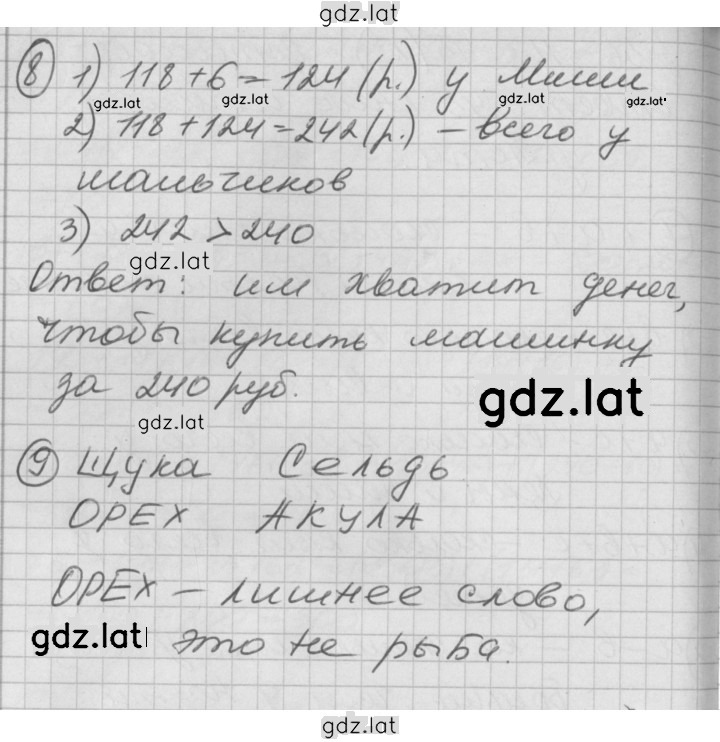 gdz.lat
⑧ 1) 118 + 6 = 124 (р.) у Миши
gdz.lat gdz.lat gdz.lat gdz.lat
2) 118 + 124 = 242 (р.) – всего у
мальчиков
3) 242 > 240
gdz.lat
Ответ: им хватит денег,
чтобы купить машинку
за 240 руб.
gdz.lat
gdz.lat
⑨ Щука Сельдь
ОРЕХ АКУЛА
ОРЕХ – лишнее слово,
gdz.lat это не рыба.
gdz.lat